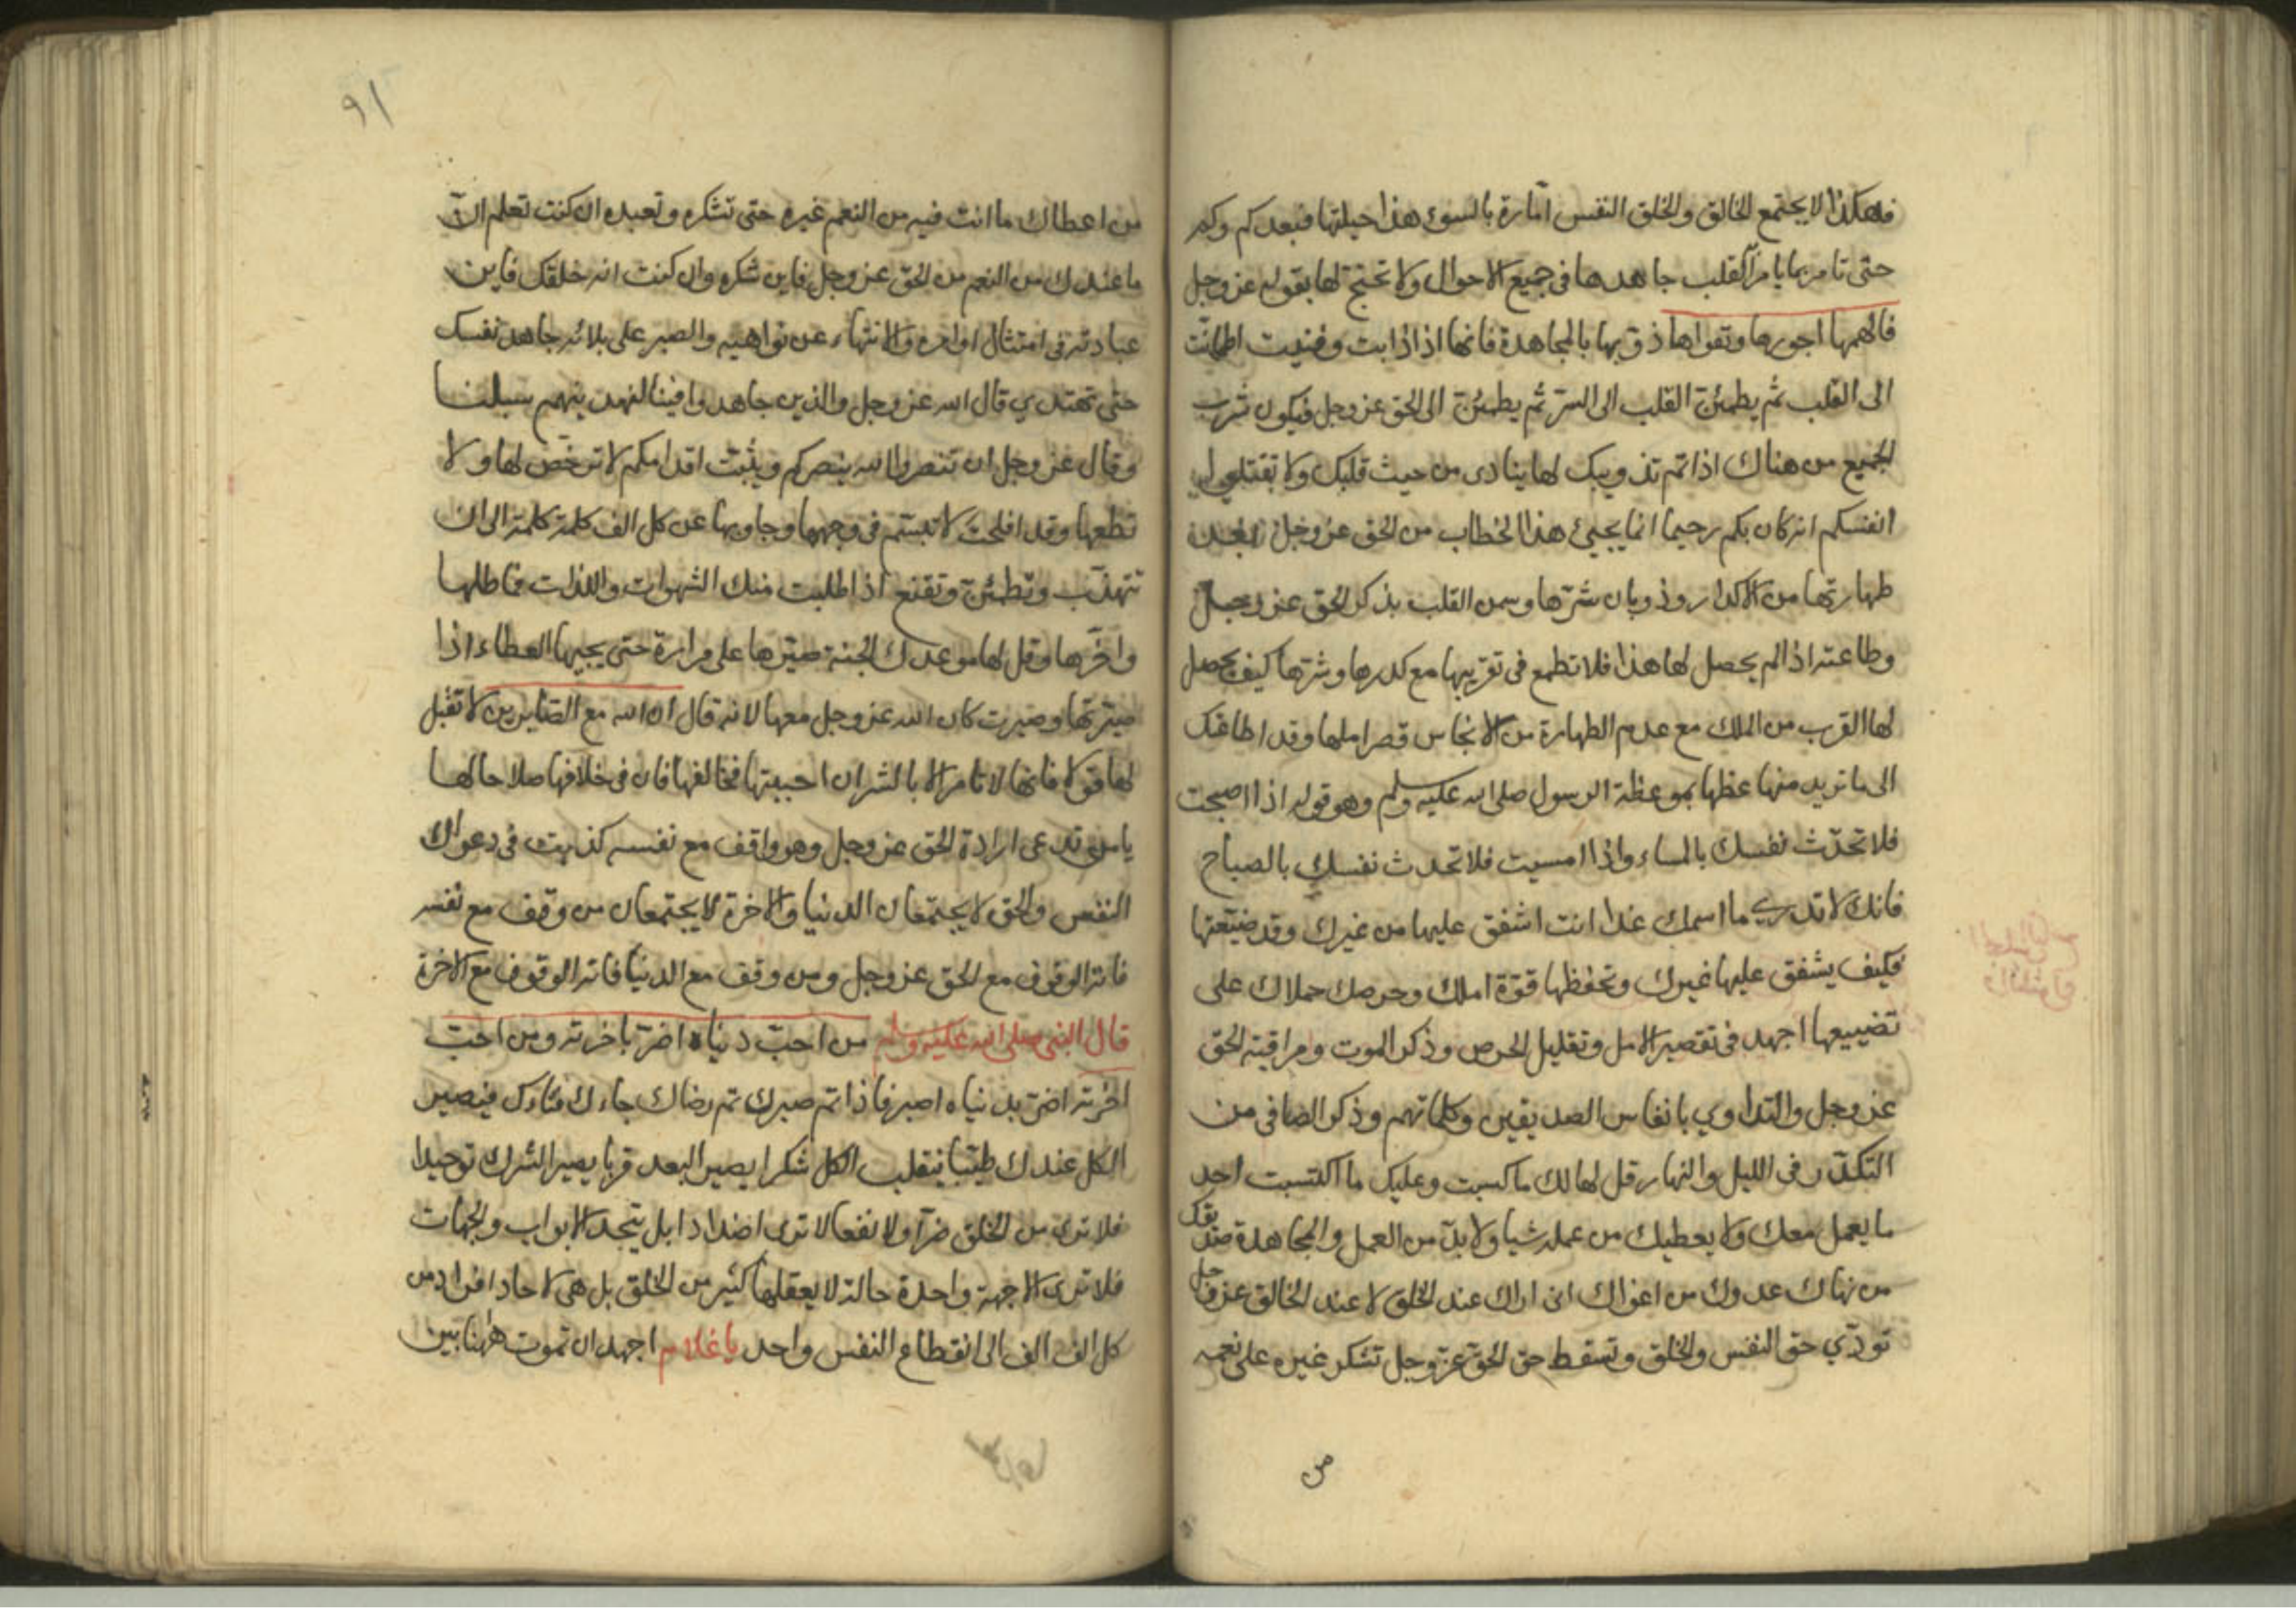 فهكذا لا يجتمع الخالق والخلق النفس امّارة بالسوء هذا حيلتها فبعدكم وكم
حتى تامر بما يامر القلب جاهدها في جميع الاحوال ولا تحتج لها بقوله عز وجل
فالهمها فجورها وتقواها ذوبها بالمجاهدة فانها اذا ذابت وفنيت اطمانت
الى القلب ثم يطمئن القلب الى السرّ ثم يطمئن الى الحق عز وجل فيكون شرب
الجميع من هناك اذا تم تذويبك لها ينادى من حيث قلبك ولا تقتلوا
انفسكم انه كان بكم رحيما انما يجيئ هذا الخطاب من الحق عز وجل بعد
طهارتها من الاكدار وذوبان شرّها وسمن القلب بذكر الحق عز وجل
وطاعته اذا لم يحصل لها هذا فلا تطمع في تقريبها مع كدرها وشرها كيف يحصل
لها القرب من الملك مع عدم الطهارة من الانجاس قصر املها وقد اطاعتك
الى ما تريد منها عظها بموعظة الرسول صلى الله عليه وسلم وهو قوله اذا اصبحت
فلا تحدّث نفسك بالمساء واذا امسيت فلا تحدث نفسك بالصباح
فانك لا تدري ما اسمك غدا انت اشفق عليها من غيرك وقد ضيّعتها
فكيف يشفق عليها غيرك وتحفظها قوّة املك وحرصك حملاك على
تضييعها اجهد في تقصير الامل وتقليل الحرص وذكر الموت ومراقبة الحق
عز وجل والتداوي بانفاس الصديقين وكلماتهم وذكر الصافي من
التكدّر في الليل والنهار قل لها لك ما كسبت وعليك ما اكتسبت احد
ما يعمل معك ولا يعطيك من عمله شيا ولا بدّ من العمل والمجاهدة صديقك
من نهاك عدوك من اغواك اني اراك عند الخلق لا عند الخالق عز وجل
تودّي حق النفس والخلق وتسقط حق الحق عزّ وجل تشكر غيره على نعمه
من
٩١
من اعطاك ما انت فيه من النعم غيره حتى تشكره وتعبده ان كنت تعلم انّ
ما عندك من النعم من الحق عز وجل فاين شكره وان كنت انه خلقك فاين
عبادته في امتثال اوامره والانتهاء عن نواهيه والصبر على بلائه جاهد نفسك
حتى تهتدي قال الله عز وجل والذين جاهدوا فينا لنهدينهم سبلنا
وقال عز وجل ان تنصروا الله ينصركم ويثبت اقدامكم لا ترخّص لها ولا
تطعها وقد افلحت لا تبتسم في وجهها وجاوبها عن كل الف كلمة كلمة الى ان
تتهذّب وتطمئنّ وتقنع اذا طلبت منك الشهوات واللذات فماطلها
واخّرها وقل لها موعدك الجنة صبّرها على مرارة حتى يجيها العطاء اذا
صبّرتها وصبرت كان الله عز وجل معها لانه قال ان الله مع الصابرين لا تقبل
لها قولا فانها لا تامر الا بالشر ان احببتها فخالفها فان في خلافها صلاحا لها
يا من تدعى ارادة الحق عز وجل وهو واقف مع نفسه كذبت في دعواك
النفس والحق لا يجتمعان الدنيا والاخرة لا يجتمعان من وقف مع نفسه
فاته الوقوف مع الحق عز وجل ومن وقف مع الدنيا فاته الوقوف مع الاخرة
قال النبي صلى الله عليه وسلم من احبّ دنياه اضر باخرته ومن احبّ
اخرته اضرّ بدنياه اصبر فاذا تم صبرك تم رضاك جاءك فناؤك فيصير
الكل عندك طيّبا ينقلب الكل شكرا يصير البعد قربا يصير الشرك توحيدا
فلا ترى من الخلق ضرّا ولا نفعا لا ترى اضدادا بل يتحد الابواب والجهات
فلا ترى الا جهة واحدة حالة لا يعقلها كثير من الخلق بل هي لاحاد افراد من
كل الف الف الى انقطاع النفس واحد يا غلام اجهد ان تموت ههنا بين